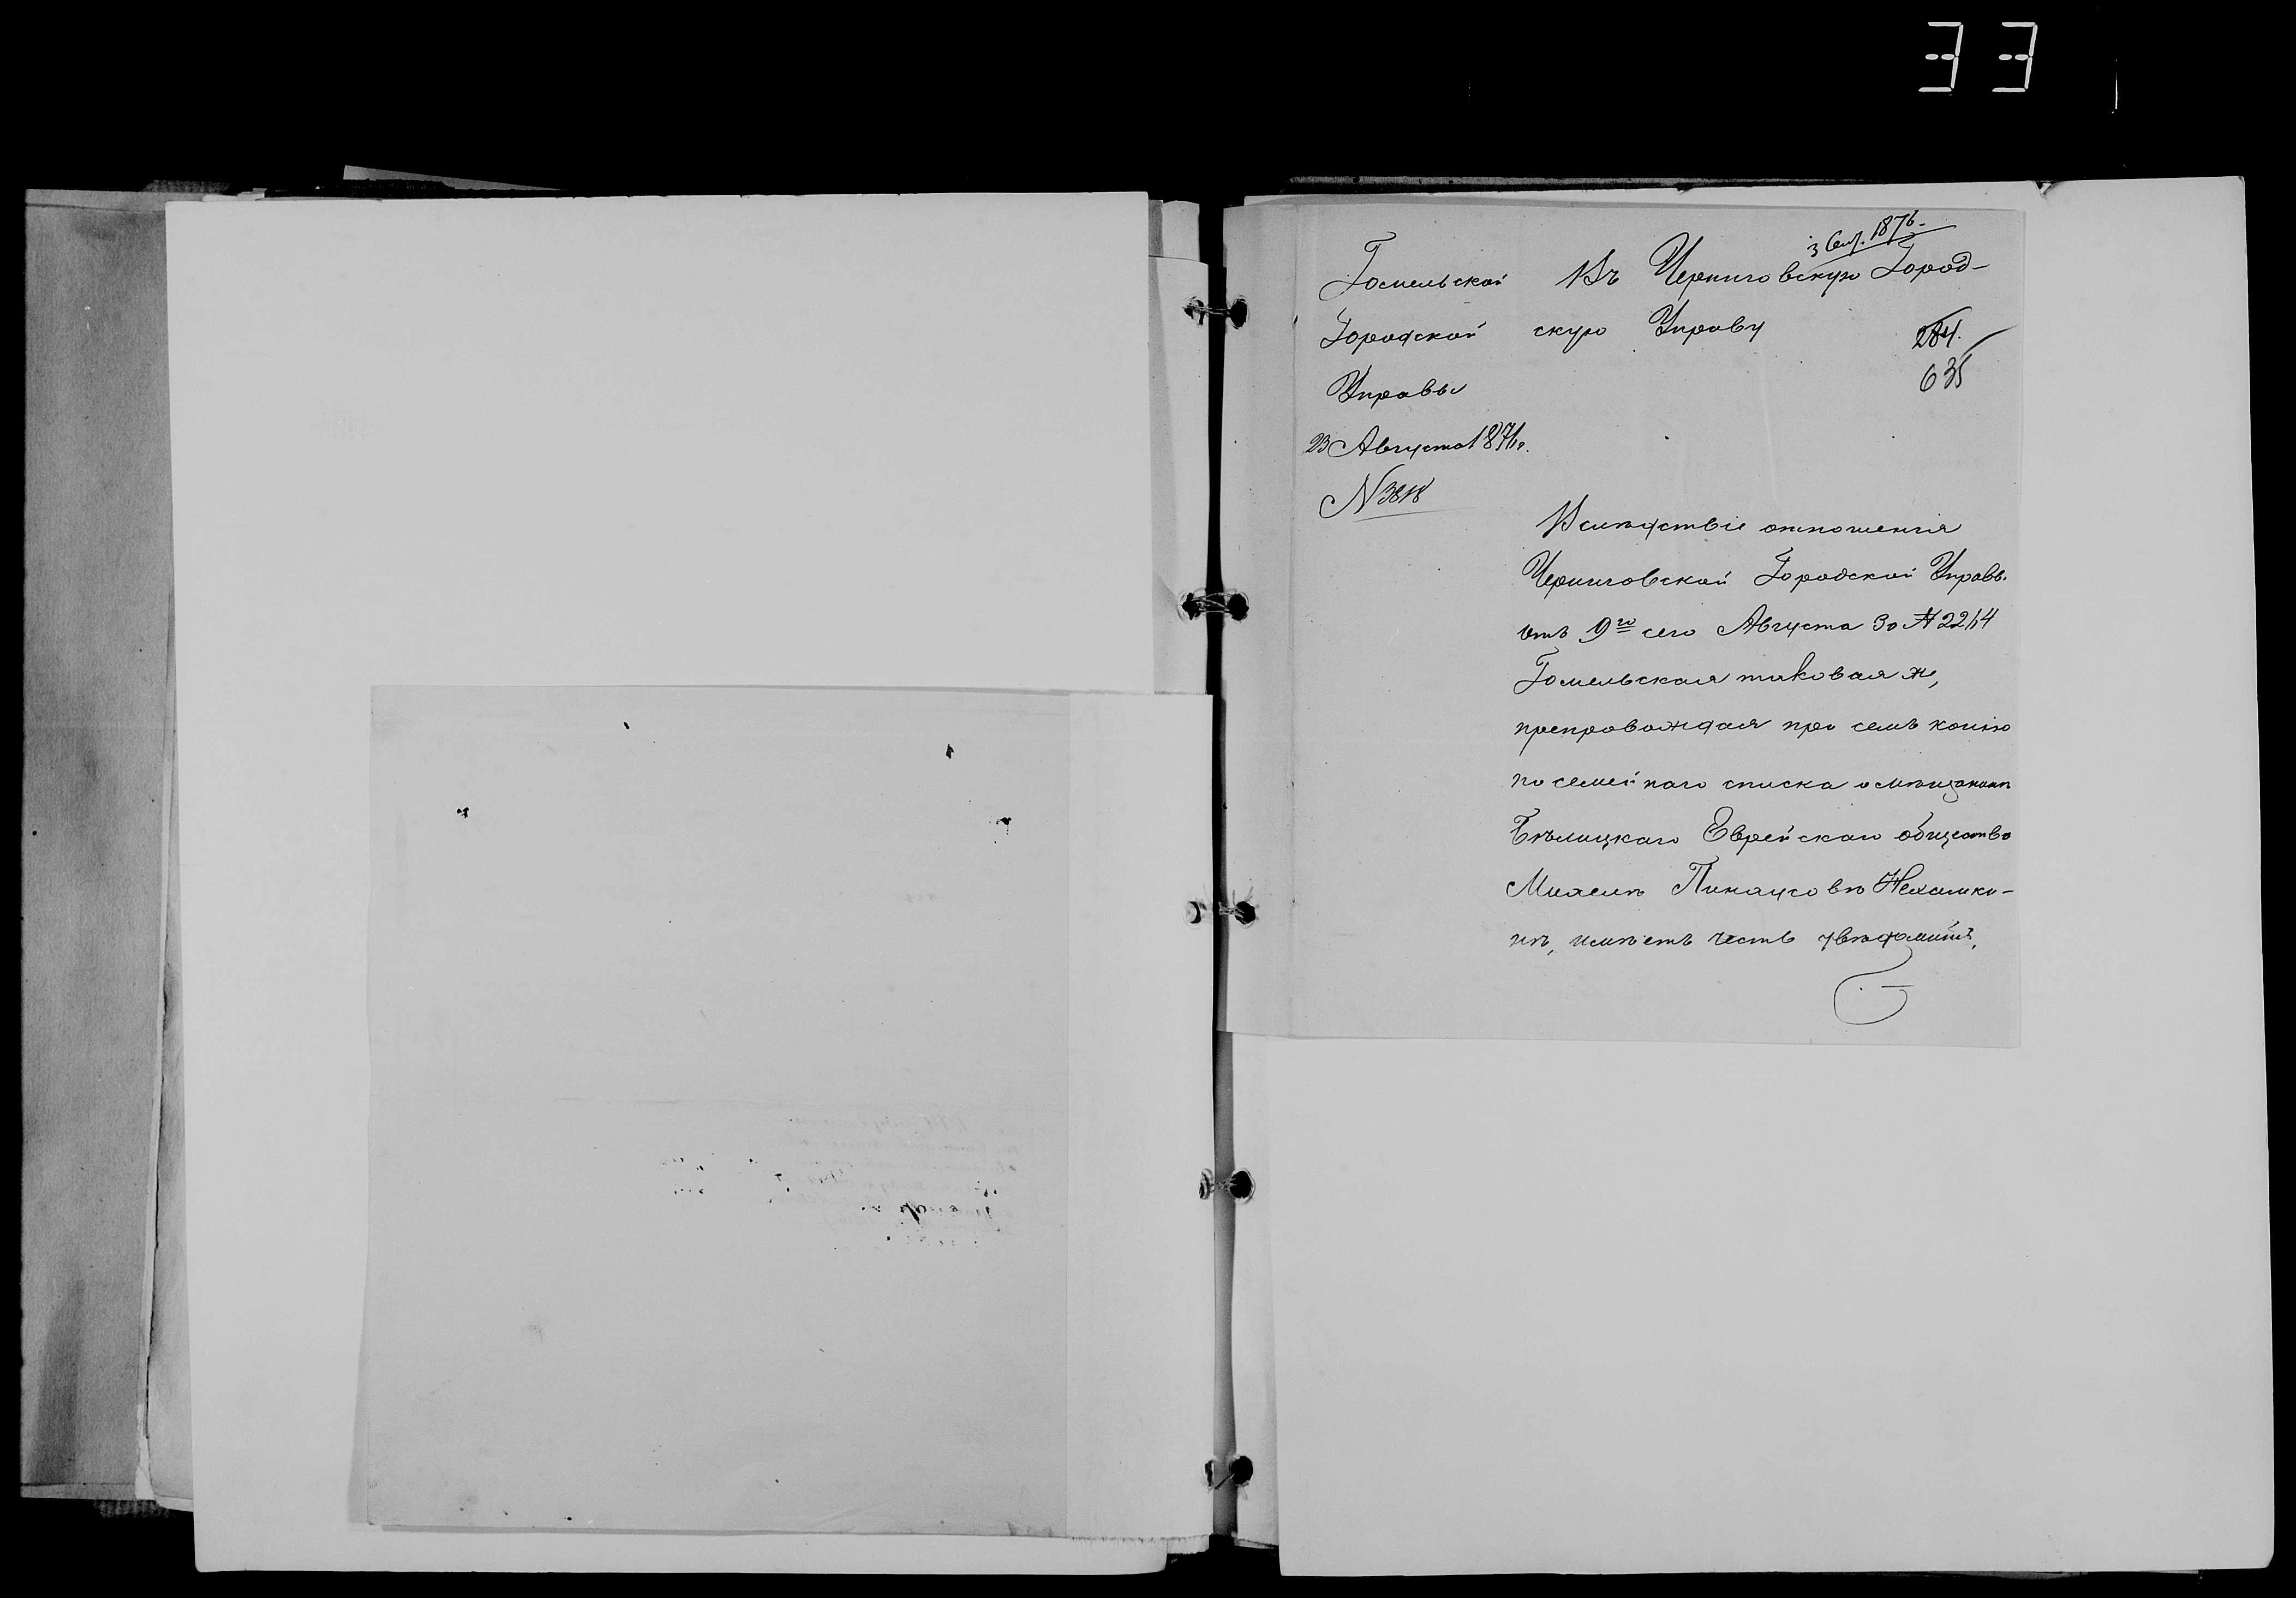 33
3 Сен. 1876.
Гомельской
Городской
Управы
23 Августа 1876 г.
N 3818
Въ Черниговскую Город-
скую Управу
284.
635
Вслѣдствіе отношенія
Черниговской Городской Управы
отъ 9го сего Августа За № 2264
Гомельская таковая же,
препровождая при семъ копію
посемейнаго списка о мѣщанинѣ
Бѣлицкаго Еврейскаго общества
Михелѣ Пинхусовѣ Нехамки-
нѣ, имѣетъ честь увѣдомить,